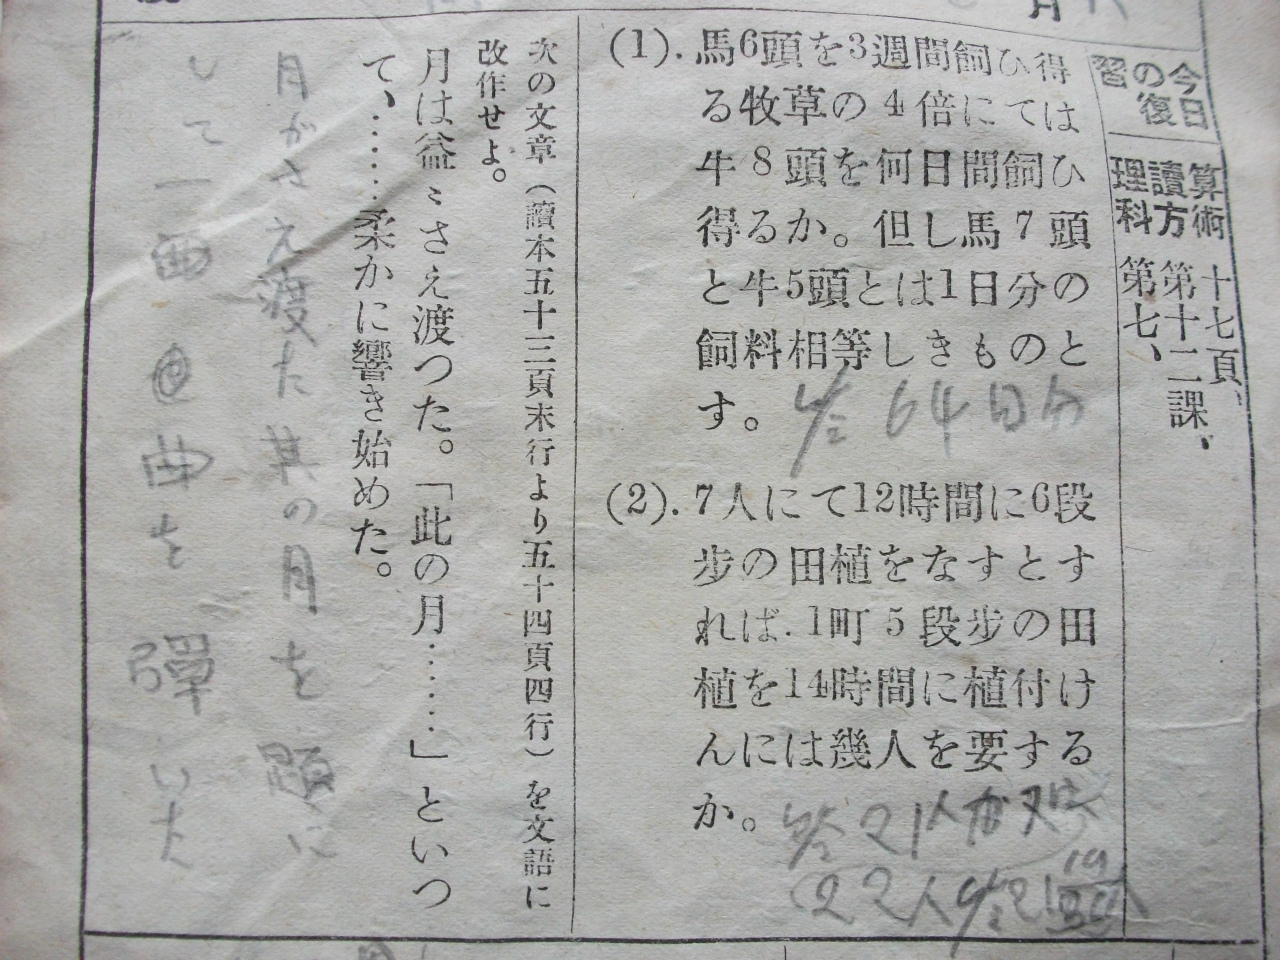 今日
の復
習
算術 十七頁、
讀方 第十二課、
理科 第七、
(1). 馬6頭を3週間飼ひ得
る牧草の4倍にては
牛8頭を何日間飼ひ
得るか。但し馬7頭
と牛5頭とは1日分の
飼料相等しきものと
す。
答 64日分
(2). 7人にて12時間に6段
步の田植をなすとす
れば.1町5段步の田
植を14時間に植付け
んには幾人を要する
か。
答 21人カ又ハ
22人
次の文章（讀本五十三頁末行より五十四頁四行）を文語に
改作せよ。
月は益〻さえ渡つた。「此の月‥‥‥」といつ
て、‥‥‥柔かに響き始めた。
月がさえ渡た其の月を題に
して一曲を彈いた